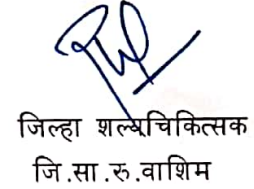 जिल्हा शल्यचिकित्सक
जि.सा.रु.वाशिम